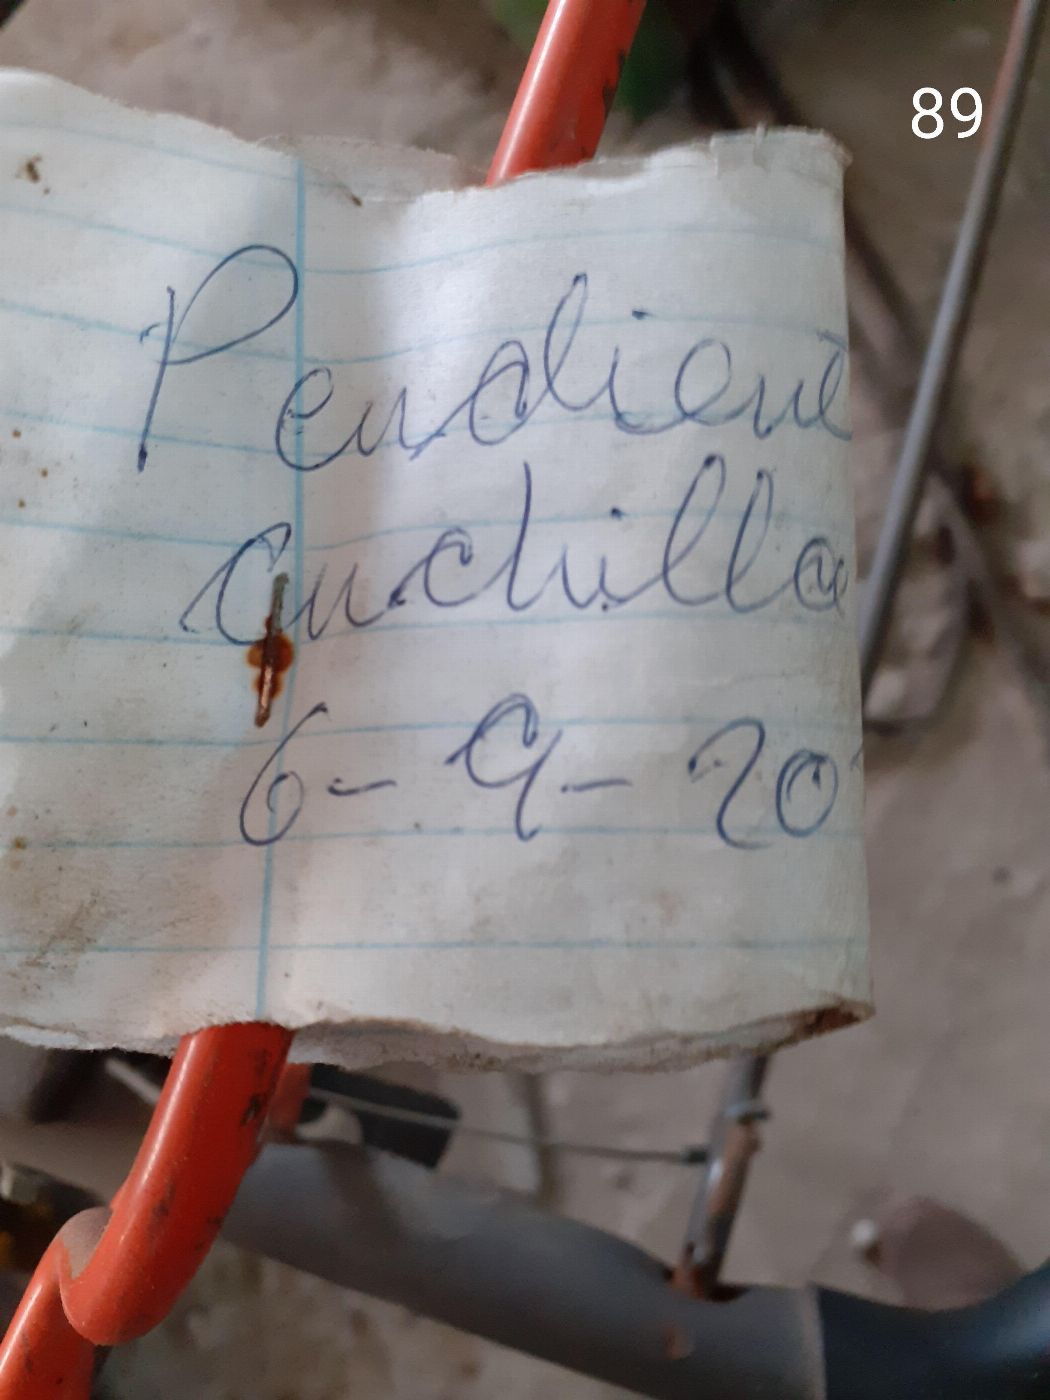 89
Pendiente
Cuchilla
6-9-20